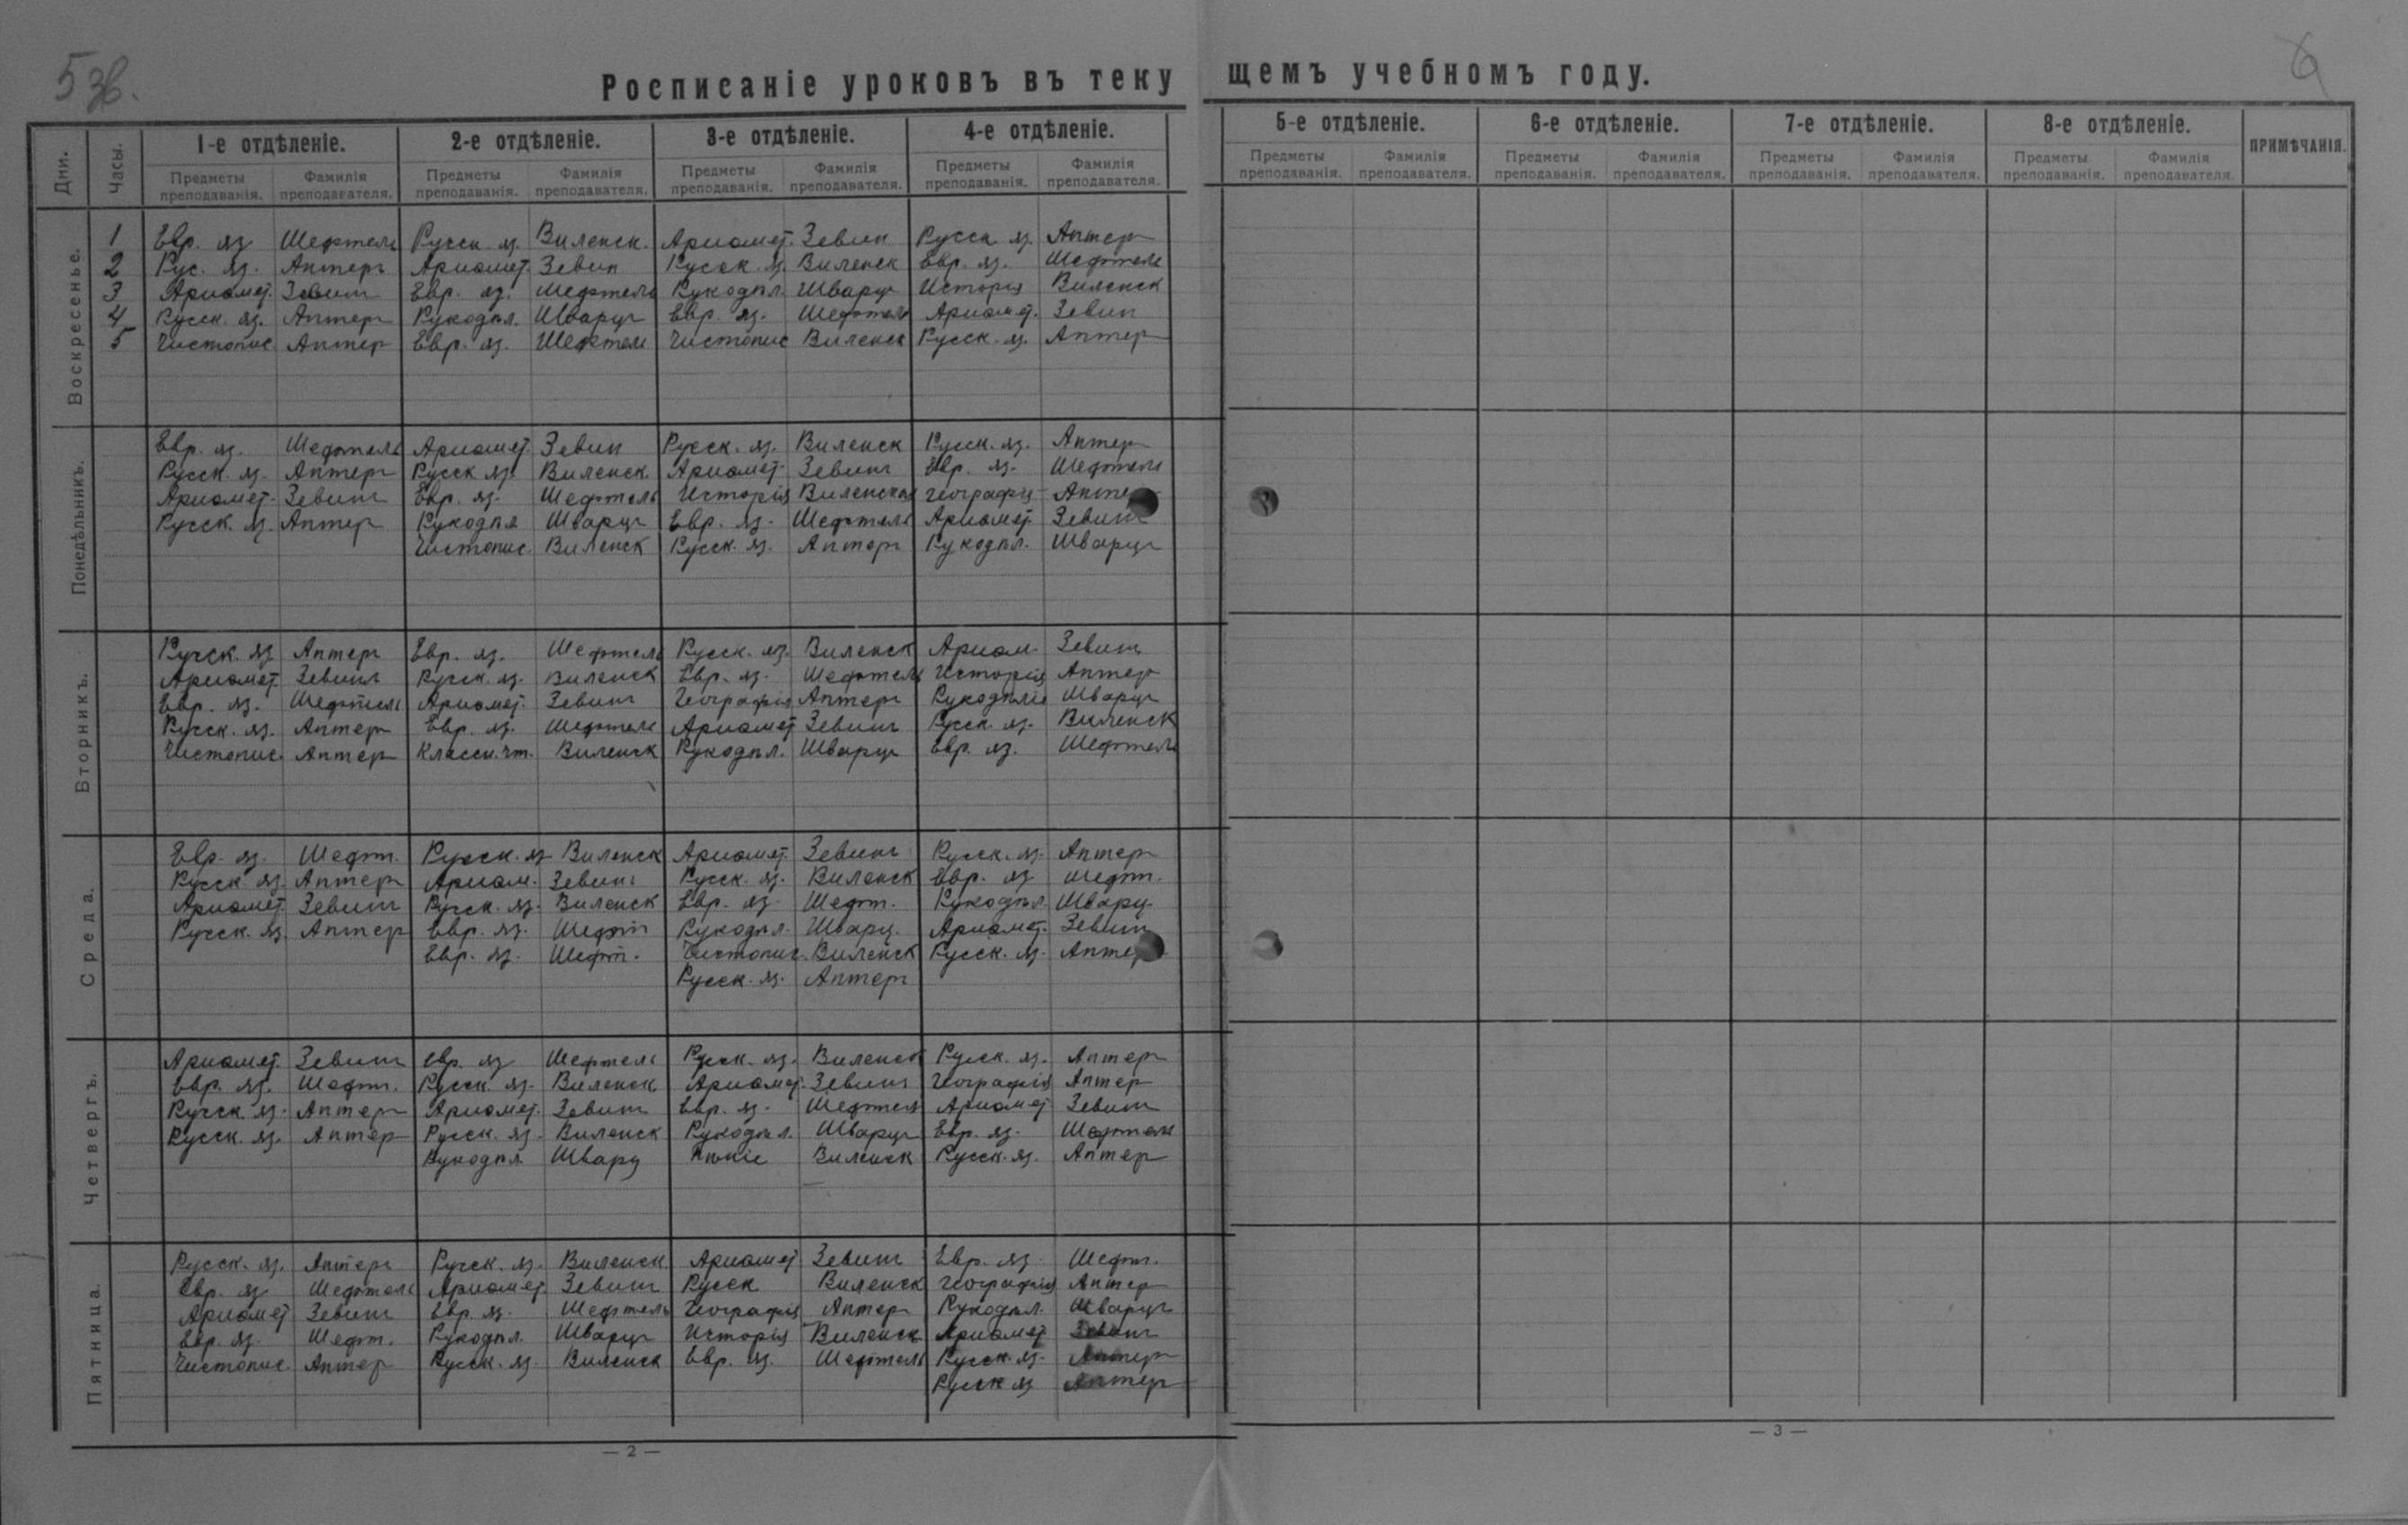 5 зв.
6
Росписаніе уроковъ въ теку щемъ учебномъ году.
Дни. Часы. 1-е отдѣленіе. 2-е отдѣленіе. 3-е отдѣленіе. 4-е отдѣленіе. 5-е отдѣленіе. 6-е отдѣленіе. 7-е отдѣленіе. 8-е отдѣленіе. ПРИМѢЧАНІЯ.
Предметы преподаванія. Фамилія преподавателя. Предметы преподаванія. Фамилія преподавателя. Предметы преподаванія. Фамилія преподавателя. Предметы преподаванія. Фамилія преподавателя. Предметы преподаванія. Фамилія преподавателя. Предметы преподаванія. Фамилія преподавателя. Предметы преподаванія. Фамилія преподавателя. Предметы преподаванія. Фамилія преподавателя.
Воскресенье.
1 Евр. яз Шефтель Русск. яз. Виленск. Ариѳмет. Зевин Русск яз. Аптер
2 Рус. яз. Аптер Ариѳмет. Зевин Русск. яз. Виленск Евр. яз. Шефтель
3 Ариѳмет. Зевин Евр. яз. Шефтель Рукодѣл. Шварц Исторія Виленск
4 Русск. яз. Аптер Рукодѣл. Шварц Евр. яз. Шефтель Ариѳмет. Зевин
5 Чистопис Аптер Евр. яз. Шефтел Чистопис Виленск Русск. яз. Аптер
Понедѣльникъ.
Евр. яз. Шефтель Ариѳмет. Зевин Русск. яз. Виленск Русск. яз. Аптер
Русск. яз. Аптер Русск яз. Виленск. Ариѳмет. Зевин Евр. яз. Шефтель
Ариѳмет. Зевин Евр. яз. Шефтель Исторія Виленская Географія Аптер
Русск. яз. Аптер Рукодѣл Шварц Евр. яз. Шефтель Ариѳмет. Зевин
Чистопис. Виленск Русск. яз. Аптер Рукодѣл. Шварц
Вторникъ.
Русск. яз Аптер Евр. яз. Шефтель Русск. яз. Виленск Ариѳм. Зевин
Ариѳмет. Зевин Русск. яз. Виленск Евр. яз. Шефтель Исторія Аптер
Евр. яз. Шефтель Ариѳмет. Зевин Географія Аптер Рукодѣліе Шварц
Русск. яз. Аптер Евр. яз. Шефтель Ариѳмет Зевин Русск. яз. Виленск
Чистопис. Аптер Классн. чт. Виленск Рукодѣл. Шварц Евр. яз. Шефтель
Среда.
Евр. яз. Шефт. Русск. яз Виленск Ариѳмет. Зевин Русск. яз. Аптер
Русск яз. Аптер Ариѳм. Зевин Русск. яз. Виленск Евр. яз Шефт.
Ариѳмет. Зевин Русск. яз. Виленск Евр. яз Шефт. Рукодѣл Шварц.
Русск. яз. Аптер Евр. яз. Шефт Рукодѣл. Шварц. Ариѳмет. Зевин
Евр. яз. Шефт. Чистопис. Виленск Русск. яз. Аптер
Русск. яз. Аптер
Четвергъ.
Ариѳмет. Зевин Евр. яз Шефтель Русск. яз. Виленск Русск. яз. Аптер
Евр. яз. Шефт. Русск. яз. Виленск Ариѳмет. Зевин Географія Аптер
Русск. яз. Аптер Ариѳмет. Зевин Евр. яз. Шефтел Ариѳмет Зевин
Русск. яз. Аптер Русск. яз. Виленск Рукодѣл. Шварц Евр. яз. Шефтель
Рукодѣл Шварц Пѣніе Виленск Русск. яз. Аптер
Пятница.
Русск. яз. Аптер Русск. яз. Виленск Ариѳмет Зевин Евр. яз. Шефт.
Евр. яз Шефтель Ариѳмет. Зевин Русск Виленск Географія Аптер
Ариѳмет Зевин Евр. яз. Шефтель Географія Аптер Рукодѣл. Шварц
Евр. яз. Шефт. Рукодѣл. Шварц Исторія Виленск Ариѳмет Зевин
Чистопис. Аптер Русск. яз. Виленск Евр. яз. Шефтель Русск. яз. Аптер
Русск яз Аптер
— 2 —
— 3 —